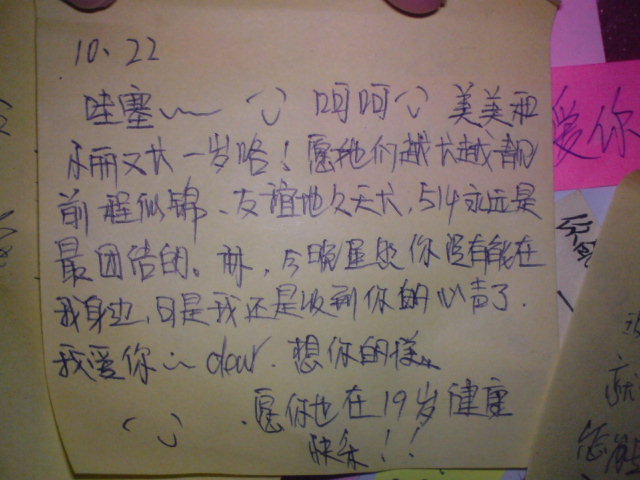 10、22
哇塞~~ 呵呵 美美和
乐丽又大一岁咯！愿她们越大越靓
前程似锦、友谊地久天长，514永远是
最团结的。今晚虽然你没有能在
我身边，可是我还是收到你的心声了.
我爱你~ dear. 想你的
愿你也在19岁健康
快乐！！
爱你
就
能